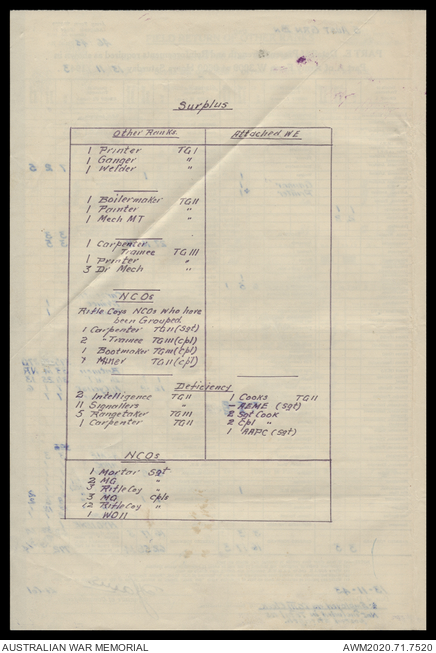 Surplus
Other Ranks. Attached WE
1 Printer TG I
1 Ganger "
1 Welder "
1 Boilermaker TG II
1 Painter "
1 Mech MT "
1 Carpenter
Trainee TG III
1 Printer "
3 Dr Mech "
NCOs
Rifle Coys NCOs who have
been Grouped
1 Carpenter TG II (Sgt)
2 " Trainee TG III (cpl)
1 Bootmaker TG III (cpl)
7 Miner TG II (cpl)
Deficiency
2 Intelligence TG II 1 Cooks TG II
11 Signallers " AEME (Sgt)
5 Rangetaker TG III 2 Sgt Cook
1 Carpenter TG II 2 Cpl "
1 AAPC (Sgt)
NCOs
1 Mortar Sgt
2 MG "
3 Rifle Coy "
3 MG cpls
2 Rifle Coy "
1 WO II
AUSTRALIAN WAR MEMORIAL AWM2020.71.7520